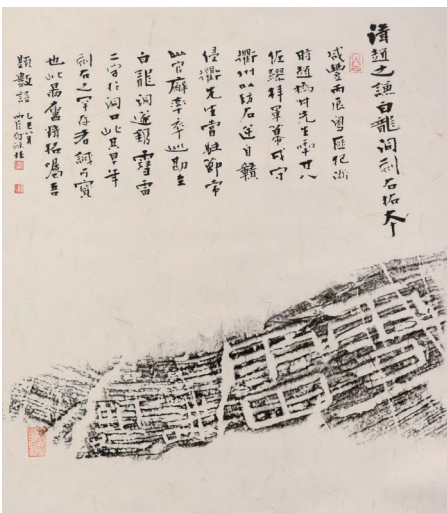 清趙之謙白龍洞刻石拓本
咸豐丙辰粵匪犯浙
時趙撝叔先生年廿八
佐繆梓軍幕戍守
衢州以防石逆自贛
侵衢先生嘗於郵常
山官廨率卒巡勘至
白龍洞遂鐫雩雷
二字於洞口此其早年
刻石之罕存者誠可寶
也此易盦精拓囑吾
題數語 乙巳